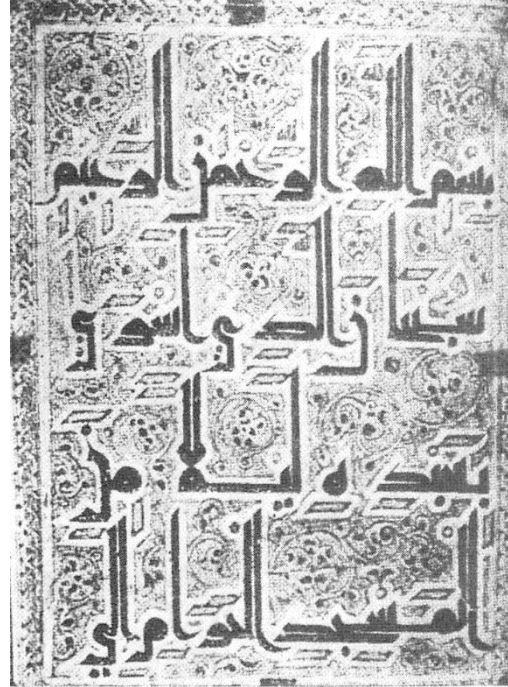 بسم الله الرحمن الرحيم
سبحان الذي أسرى
بعبده ليلا من
المسجد الحرام إلى